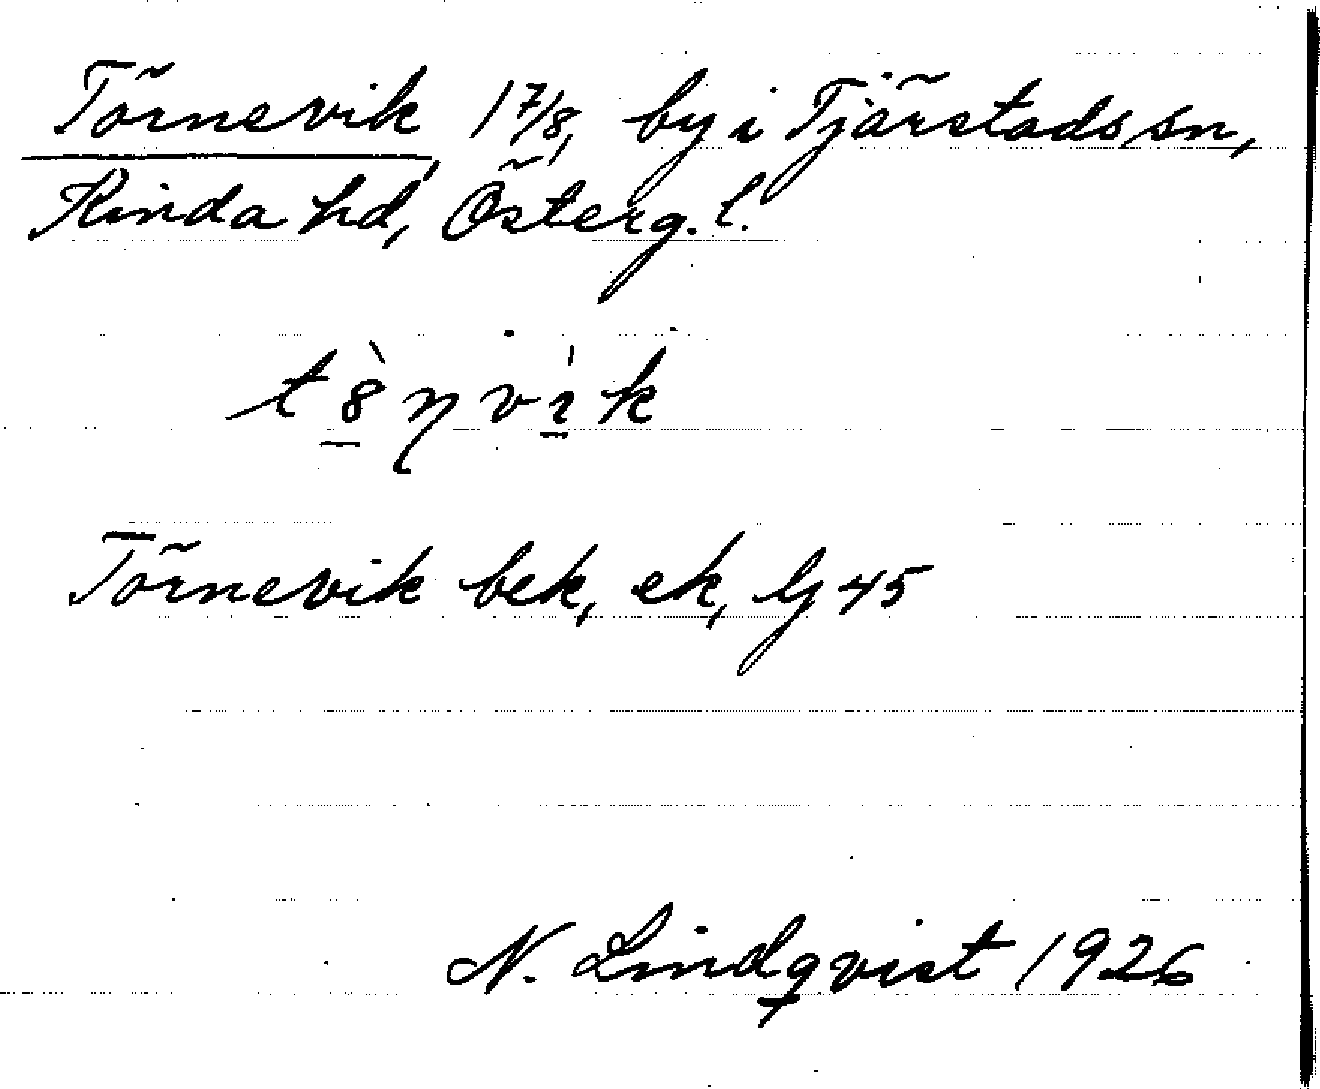 Törnevik, 1 7/8, by i Tjärstads sn,
Kinda hd, Österg. l.
t8̲̀ɳvi̲̍k
Törnevik bek, ek, Lj 45
N. Lindqvist 1926